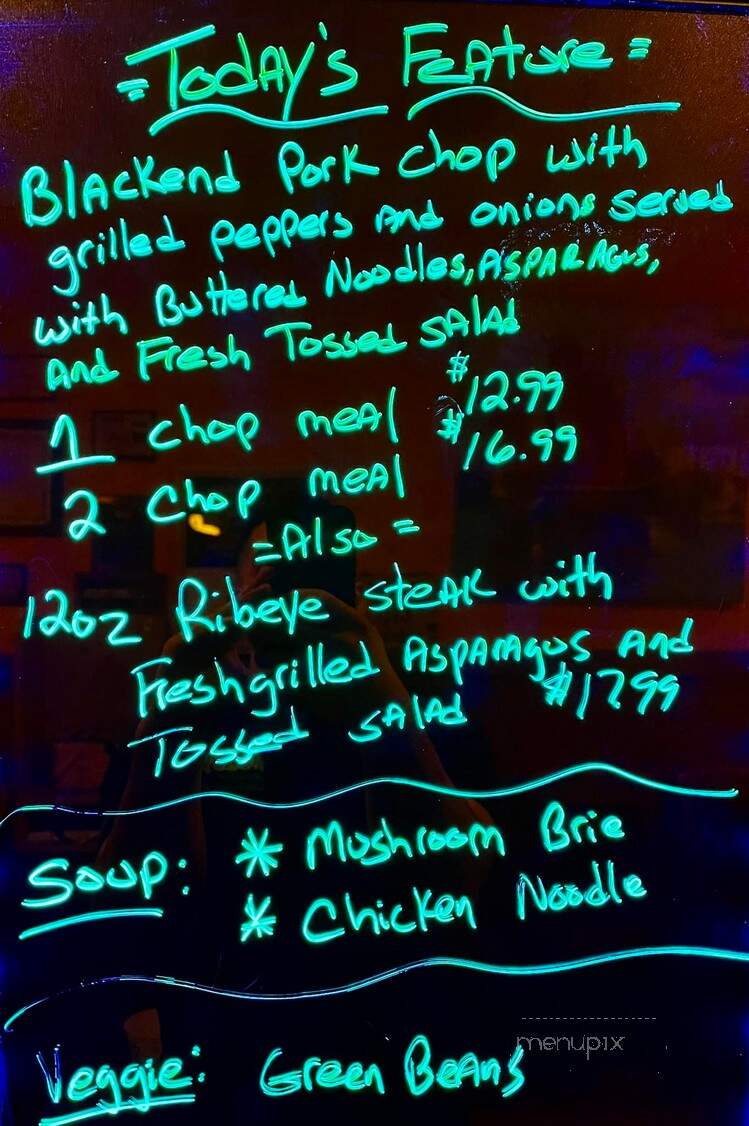 =Today's Feature=
Blackend Pork Chop with
grilled peppers And onions served
with Buttered Noodles, Asparagus,
And Fresh Tossed salad
1 chop meal $12.99
2 chop meal $16.99
=Also=
12oz Ribeye steak with
Fresh grilled Asparagus and
Tossed salad $17.99
Soup: * Mushroom Brie
* Chicken Noodle
menupix
Veggie: Green Beans